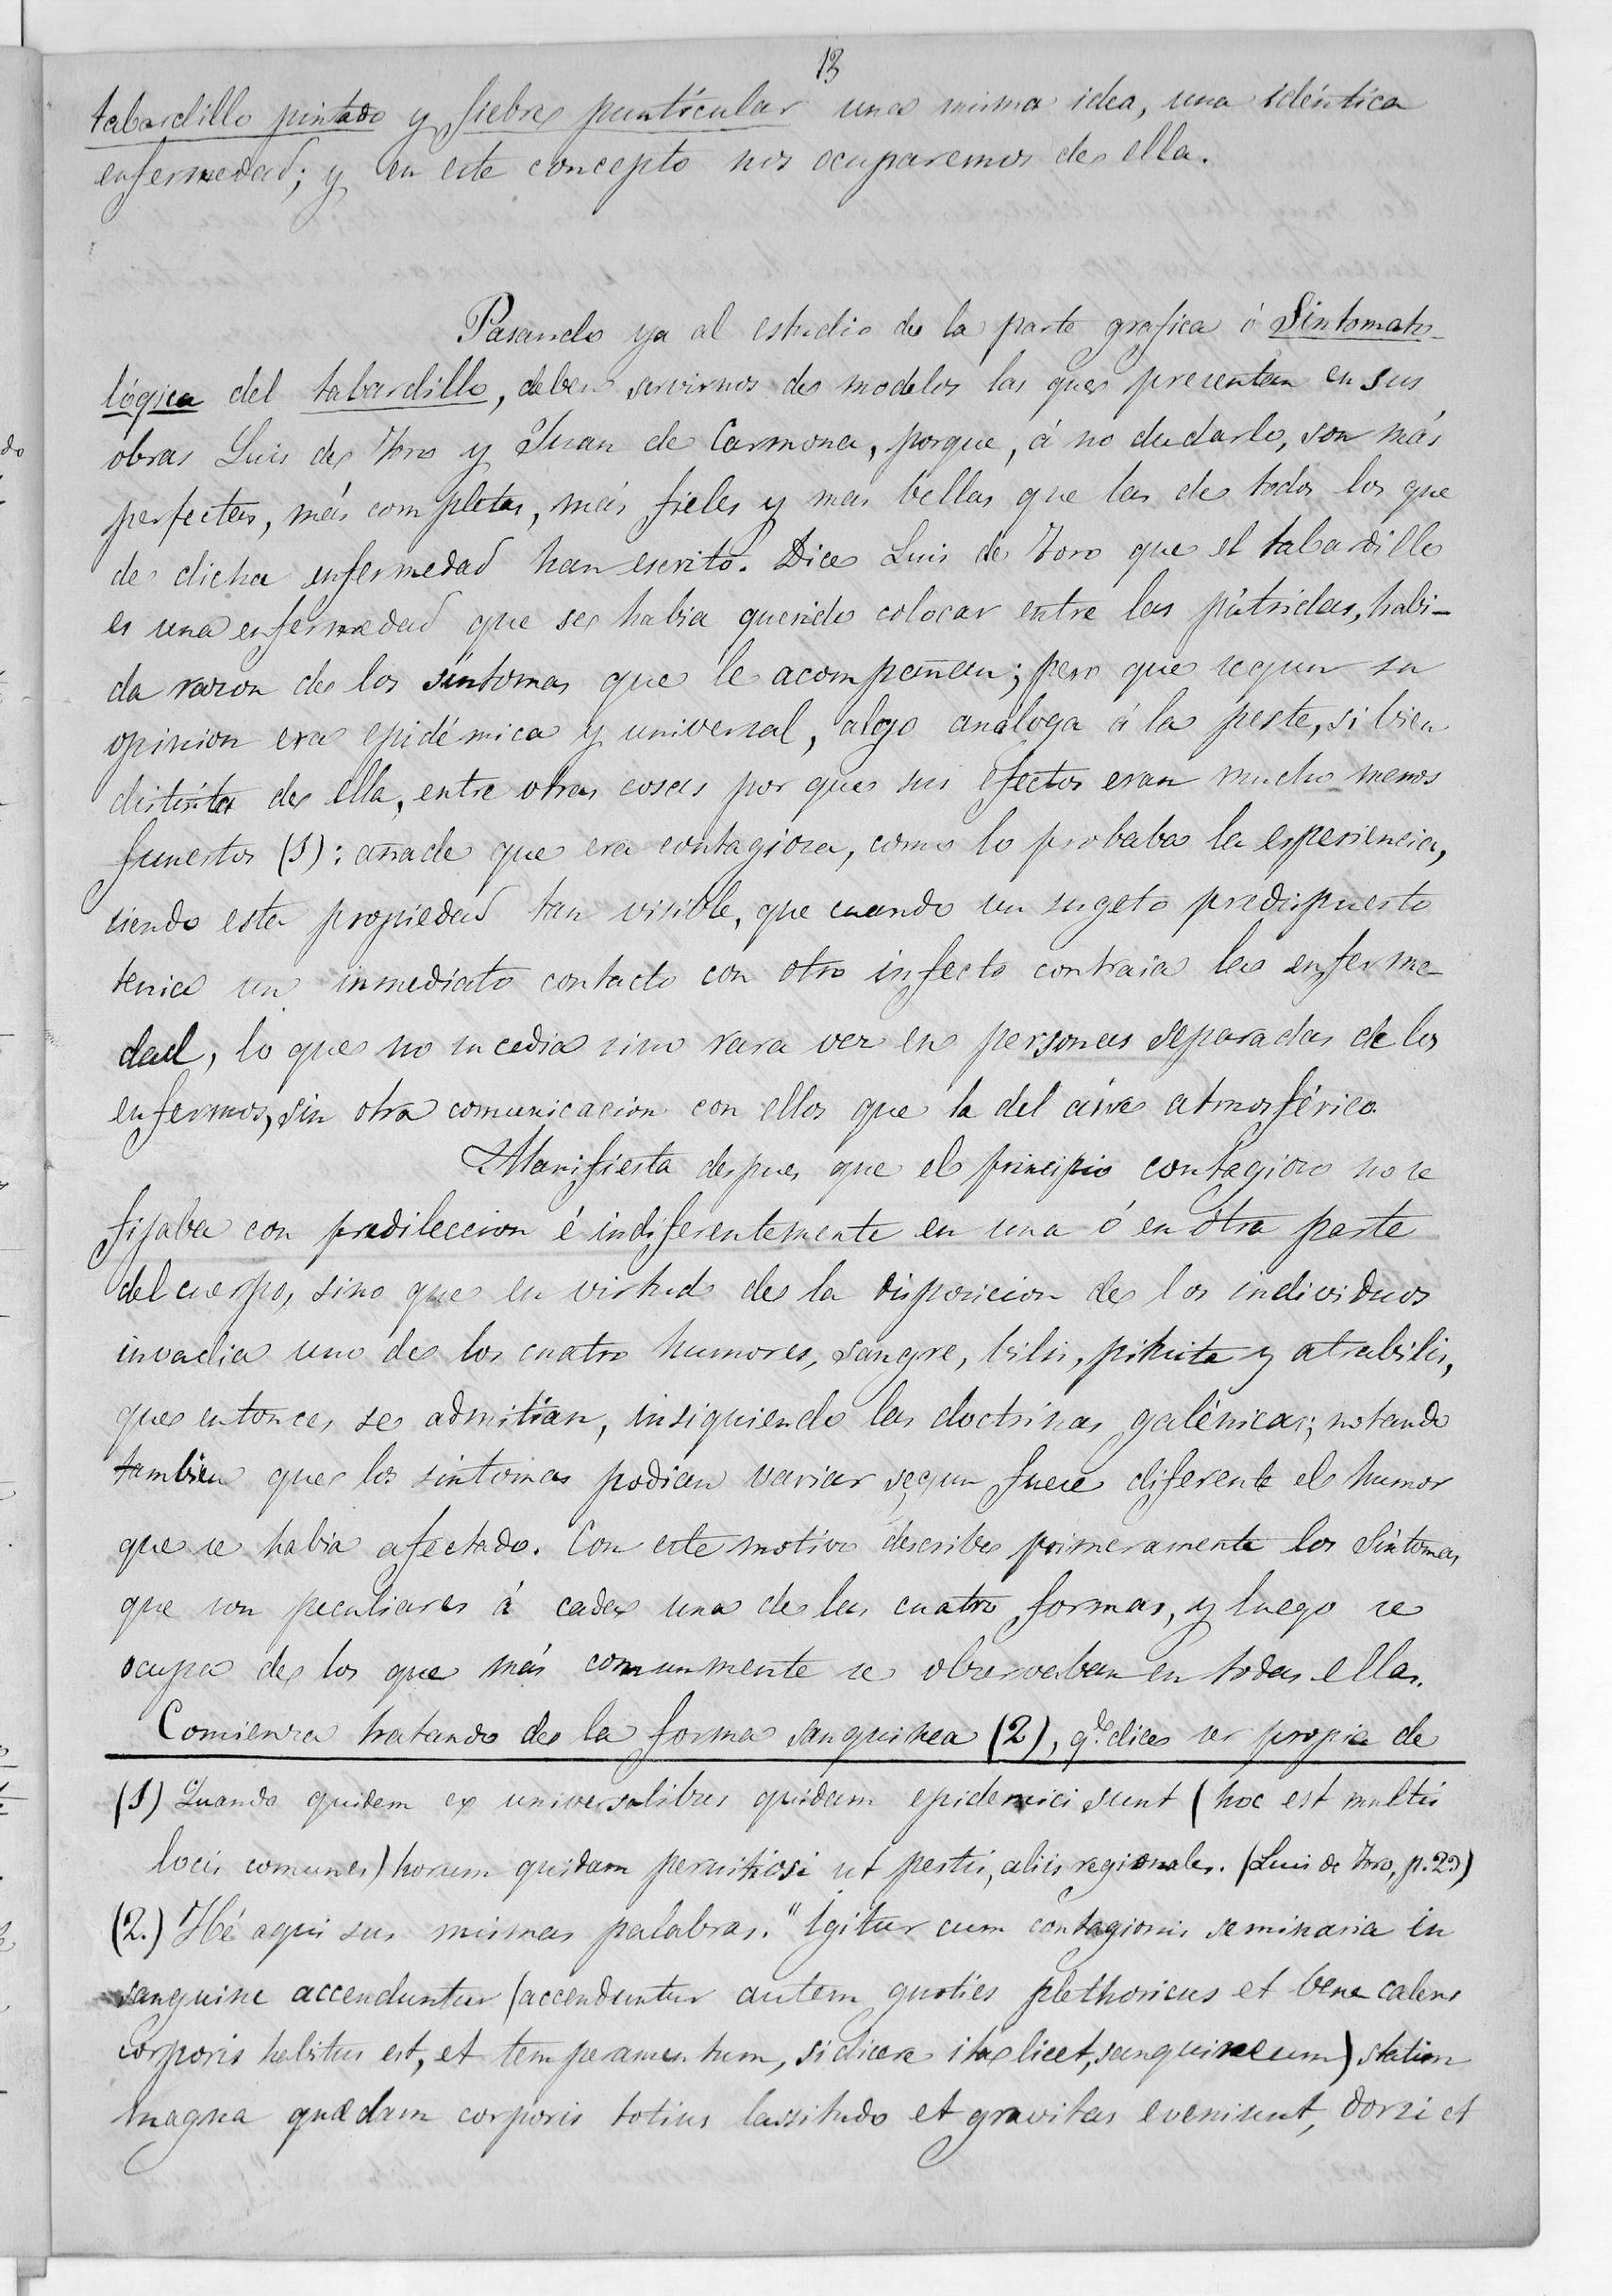 13
tabardillo pintado y fiebre puntícular una misma idea, una idéntica
enfermedad; y en este concepto nos ocuparemos de ella.
Pasando ya al estudio de la parte grafica ó Sintomato-
lógica del tabardillo, deben servirnos de modelos las que presentan en sus
obras Luis de Toro y Juan de Carmona, porque, á no dudarlo, son más
perfectas, más completas, más fieles y mas bellas que las de todos los que
de dicha enfermedad han escrito. Dice Luis de Toro que el tabardillo
es una enfermedad que se habia querido colocar entre las pútridas, habi-
da razon de los síntomas que le acompañan; pero que segun su
opinion era epidémica y universal, algo análoga á la peste, si bien
distinta de ella, entre otras cosas por que sus efectos eran mucho menos
funestos (1): añade que era contagiosa, como lo probaba la esperiencia,
siendo esta propiedad tan visible, que cuando un sugeto predispuesto
tenia un inmediato contacto con otro infecto contraia la enferme-
dad, lo que no sucedia sino rara vez en personas separadas de los
enfermos, sin otra comunicacion con ellos que la del aire atmosférico.
Manifiesta despues que el principio contagioso no se
fijaba con predileccion é indiferentemente en una ó en otra parte
del cuerpo, sino que en virtud de la disposicion de los individuos
invadia uno de los cuatro humores, sangre, bilis, pituita y atrabilis,
que entonces se admitían, insiguiendo las doctrinas galénicas; notando
tambien que los sintomas podian variar segun fuese diferente el humor
que se habia afectado. Con este motivo describe primeramente los síntomas
que son peculiares á cada una de las cuatro formas, y luego se
ocupa de los que más comunmente se observaban en todas ellas.
Comienza tratando de la forma sanguinea (2), q.e dice ser propia de
(1) Quando quidem ex universalibus quidam epidemici sunt (hoc est multis
locis comunes) horum quidam pernitiosi ut pestis, aliis regionales. (Luis de Toro, p. 29)
(2.) Hé aqui sus mismas palabras. "Igitur cum contagionis seminaria in
sanguine accenduntur (accenduntur autem quoties plethoricus et bene calens
corporis habitus est, et temperamentum, si dicere ita licet, sanguineum) statim
magna quædam corporis totius lassitudo et gravitas eveniunt, dorsi et